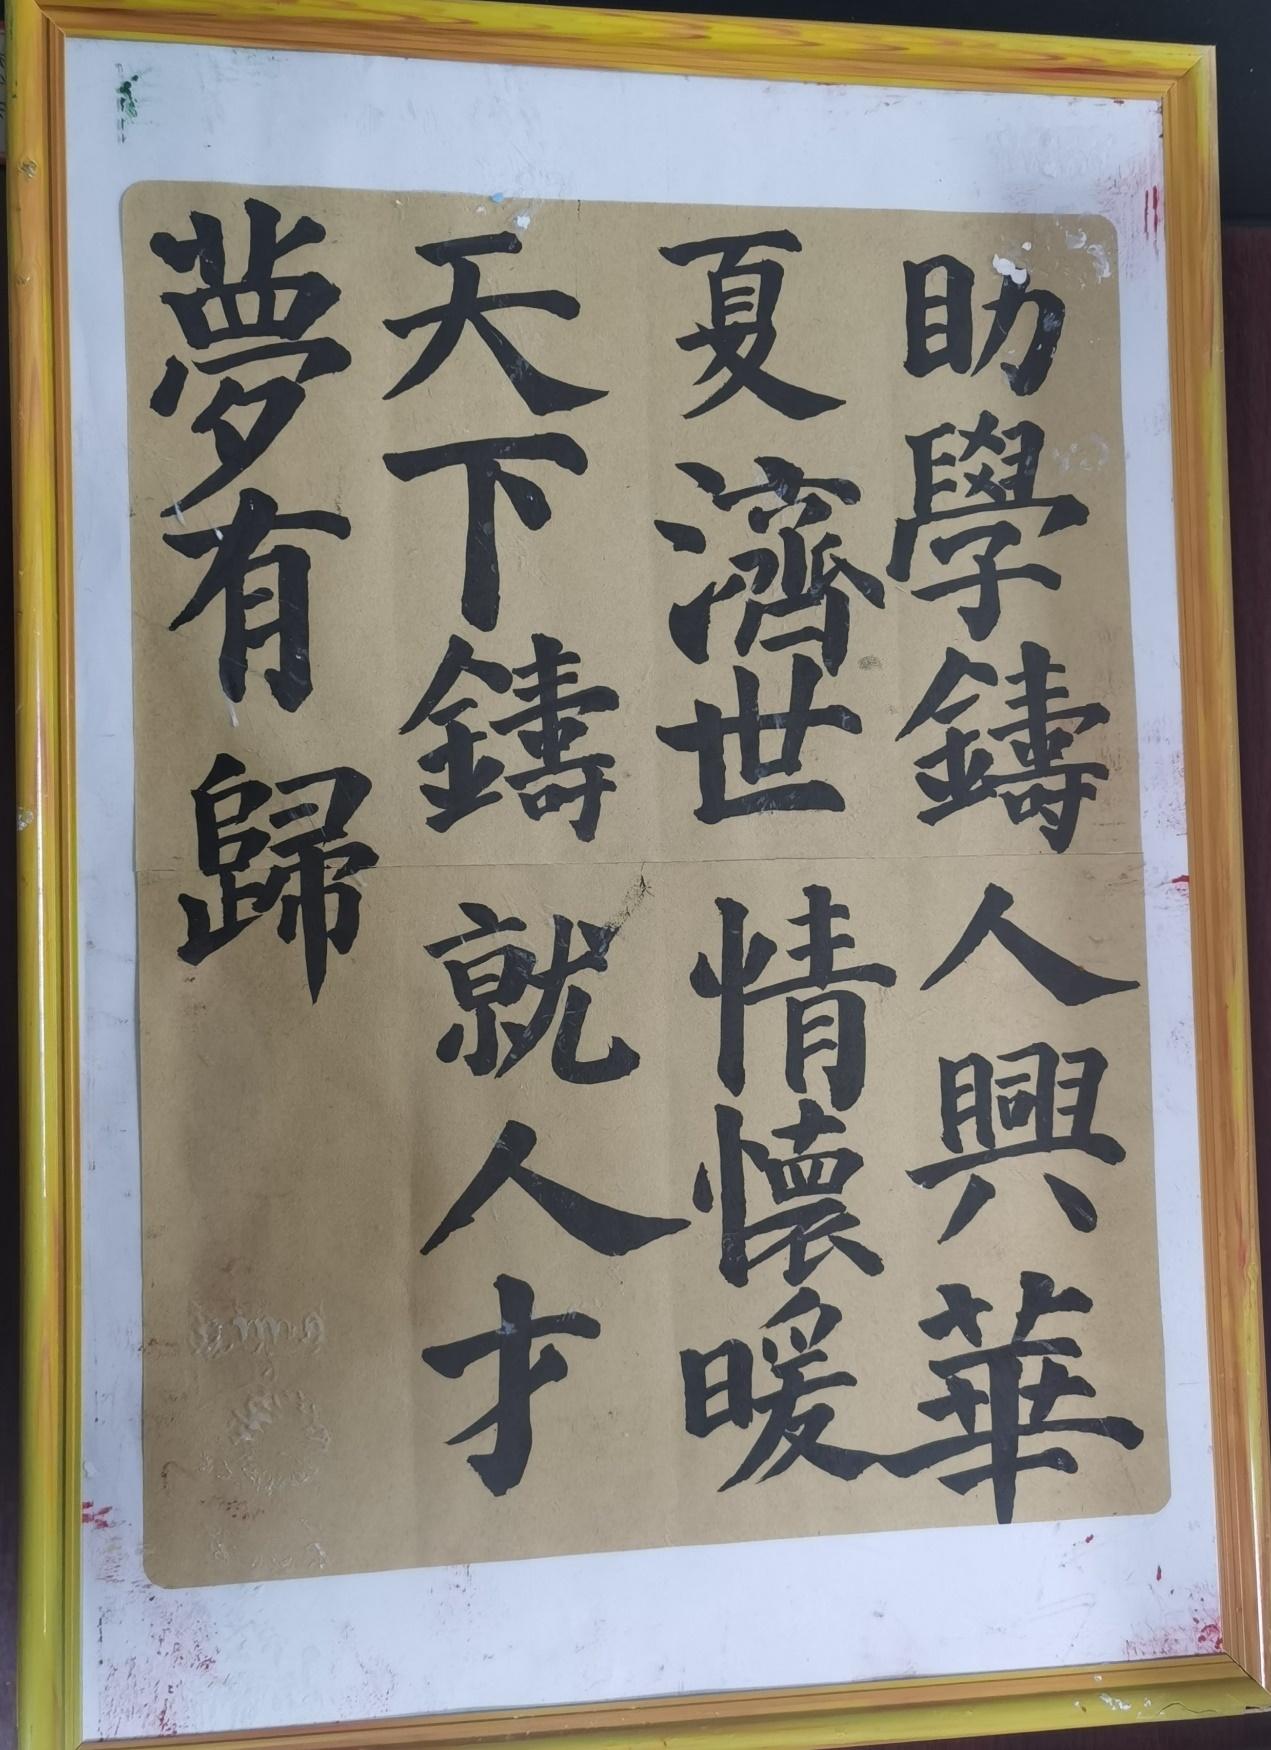 助學鑄人興華
夏濟世情懷暖
天下鑄就人才
夢有歸